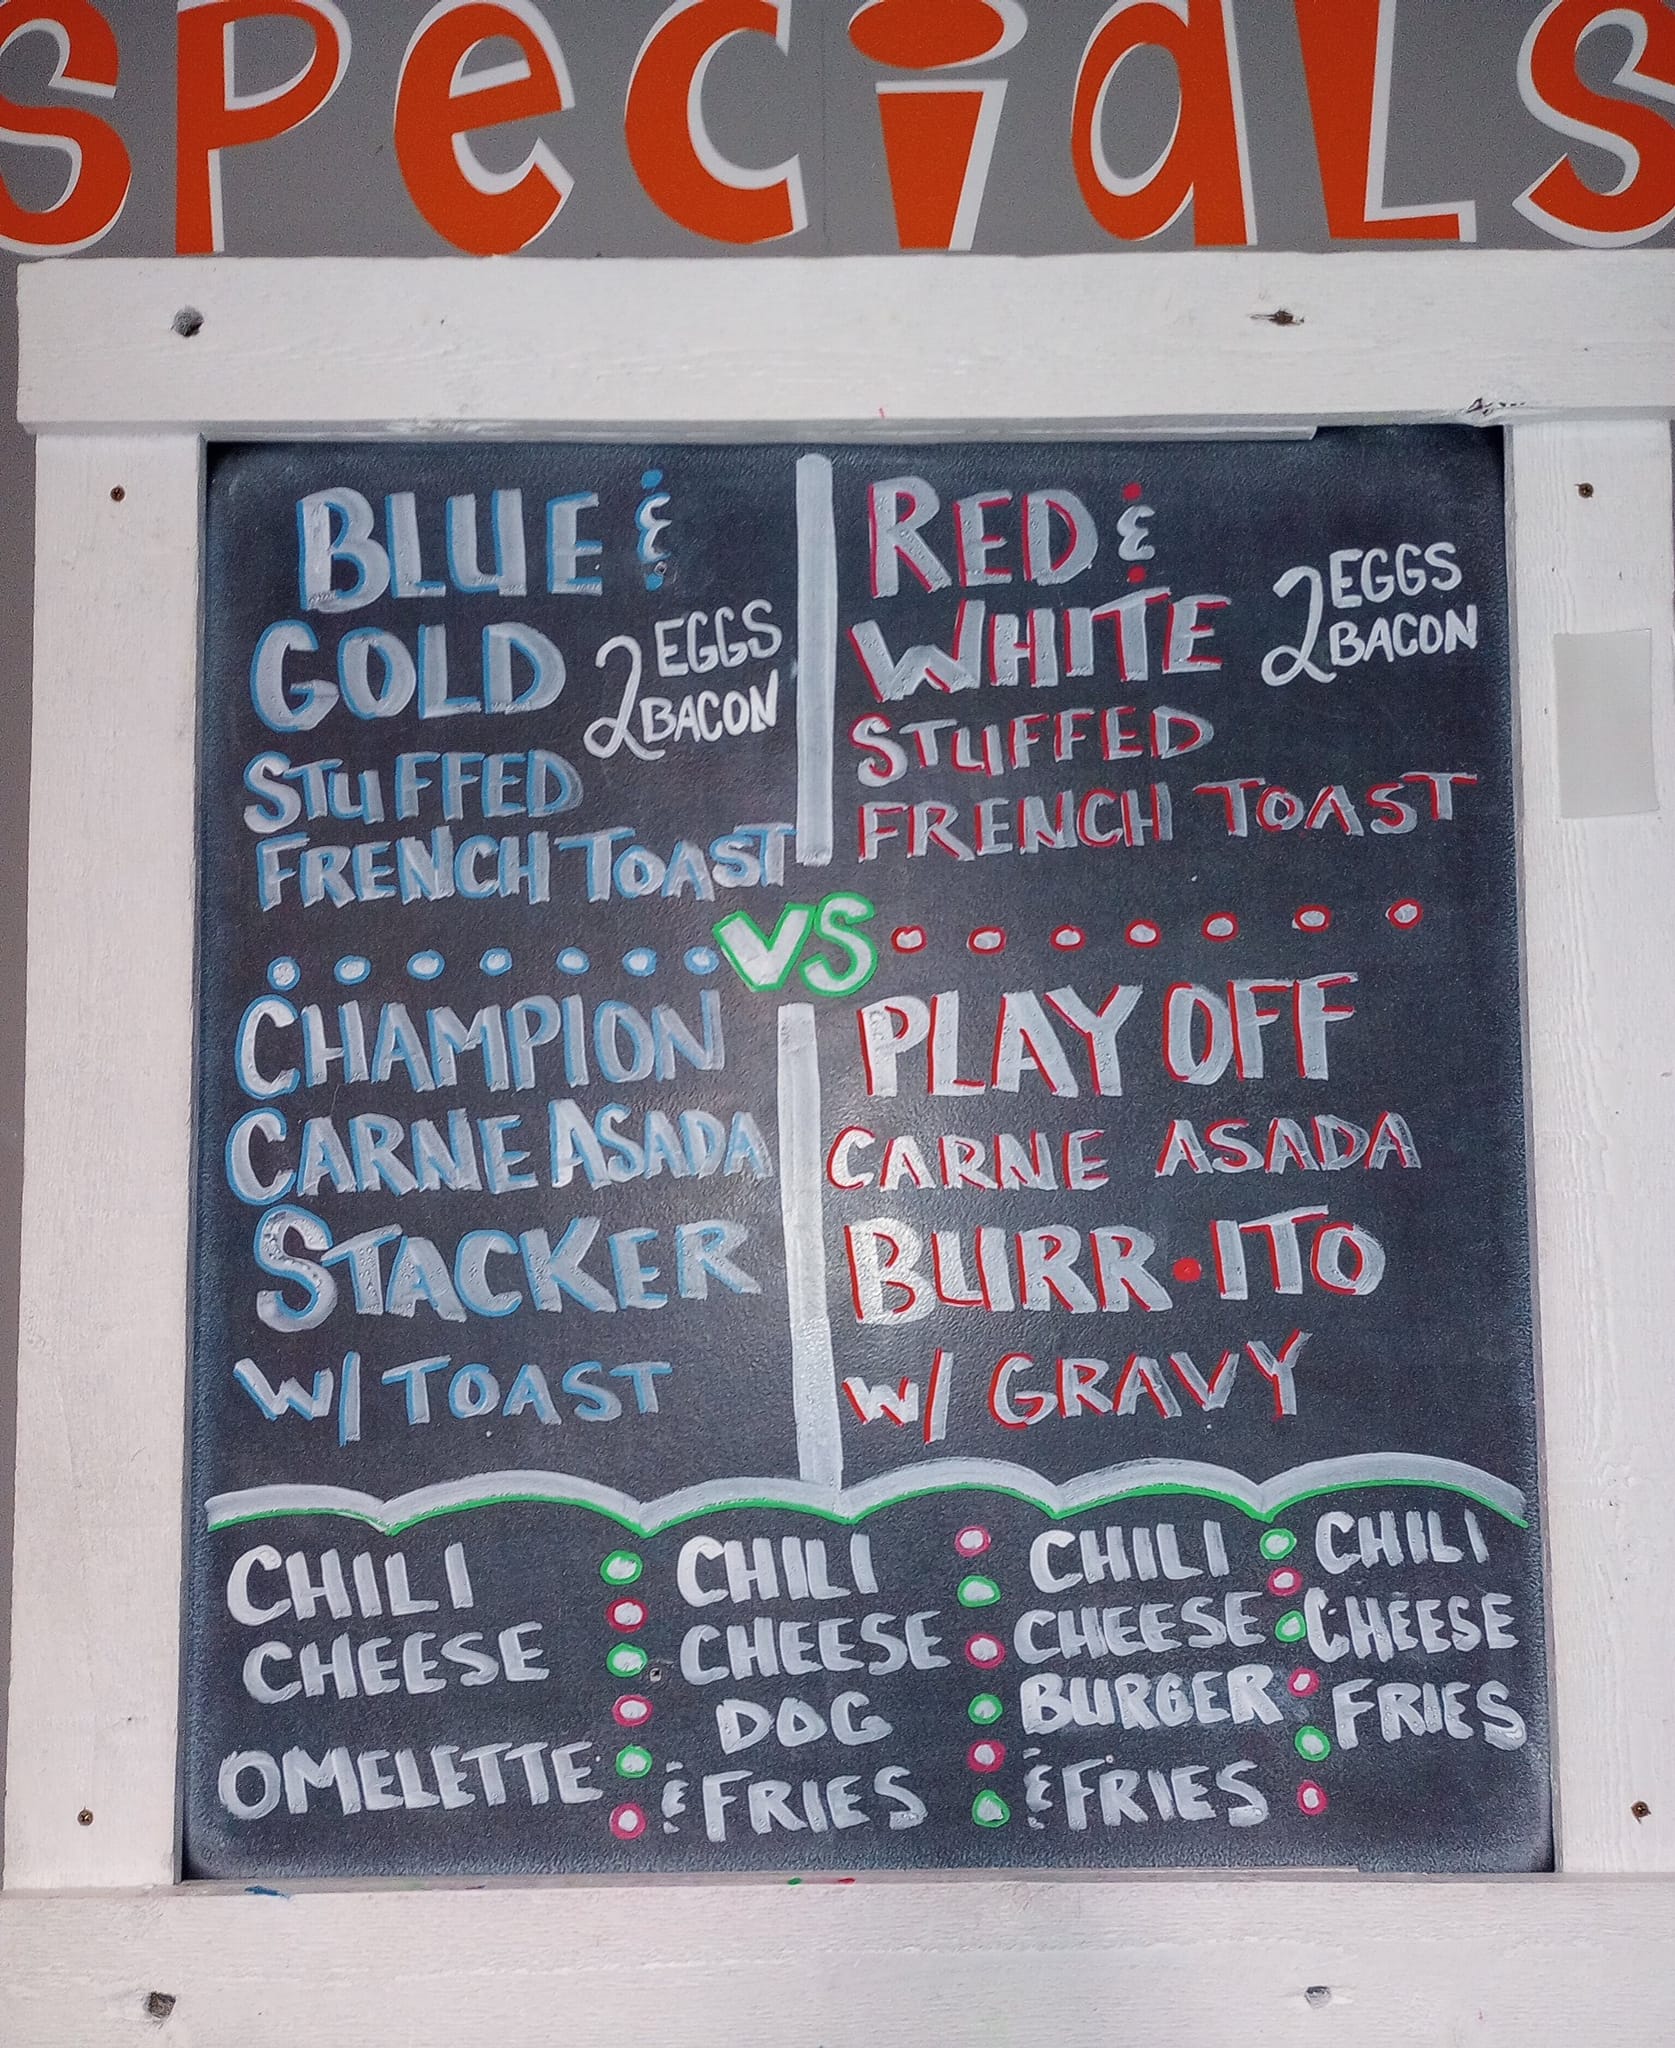 SPeciaLS
BLUE &
GOLD
2 EGGS
2 BACON
STUFFED
FRENCH TOAST
RED &
WHITE
2 EGGS
2 BACON
STUFFED
FRENCH TOAST
VS
CHAMPION
CARNE ASADA
STACKER
W/ TOAST
PLAY OFF
CARNE ASADA
BURR•ITO
W/ GRAVY
CHILI
CHEESE
OMELETTE
CHILI
CHEESE
DOG
& FRIES
CHILI
CHEESE
BURGER
& FRIES
CHILI
CHEESE
FRIES